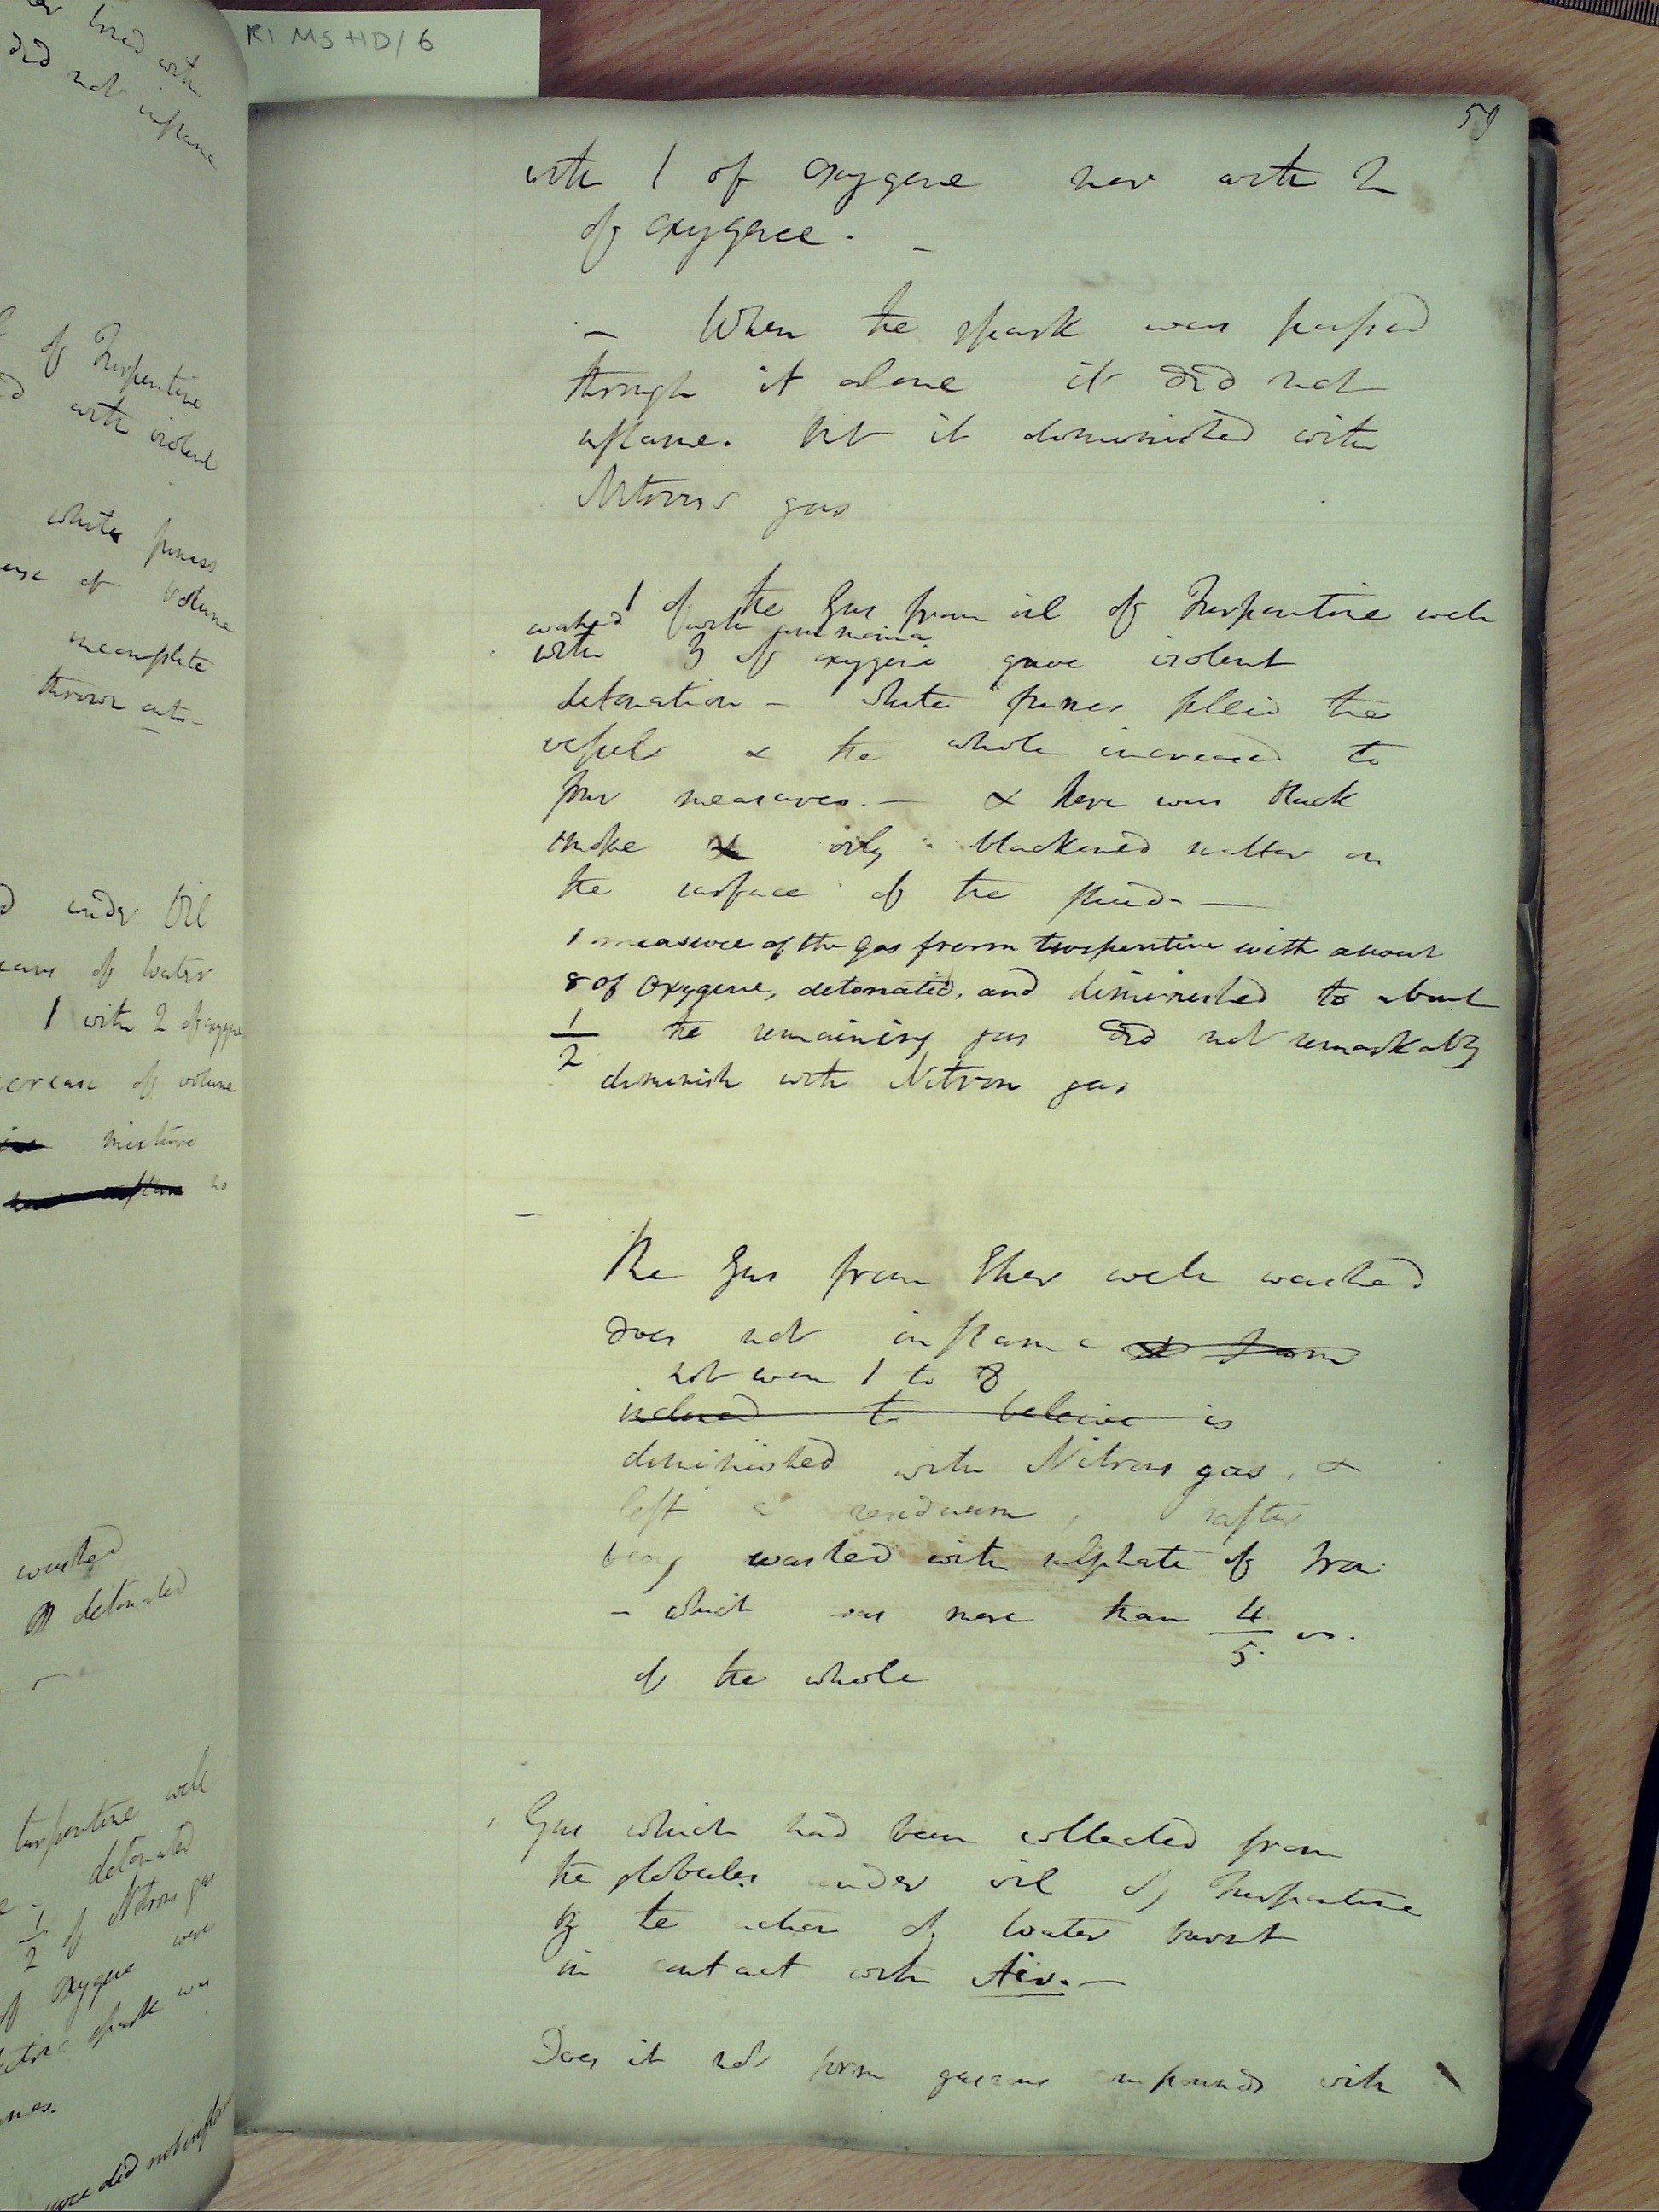 er hœd with
did not inflame
of Turpentine
with violent
white fumes
ease of volume
incomplete
thrown out -
under Oil
of water
1 with 2 of oxygene
crease of volume
mixture
no
washed
detonated
turpentine well
detonated
1/2 of Nitrous gas
of oxygene were
spark was
did not inflame
RI MS HD/6
59
with 1 of oxygene nor with 2
of oxygene. -
- When the spark was passed
through it alone it did not
inflame. but it diminished with
Nitrous gas
1 of the Gas from oil of Turpentine well
washed with ammonia
with 3 of oxygene gave violent
detonation - white fumes filled the
vessel & the whole increased to
four measures. - & there was black
smoke & oily blackened matter on
the surface of the fluid. -
1 measure of the gas from turpentine with about
8 of Oxygene, detonated, and diminished to about
1/2 the remaining gas did not remarkably
diminish with Nitrous gas
-
The Gas from Ether well washed
does not inflame & from
not even 1 to 8
inclined to beleive is
diminished with Nitrous gas, &
left a residuum, after
being washed with sulphate of Iron
- which was more than 4/5
of the whole
Gas which had been collected from
the globules under oil of Turpentine
by the action of water burnt
in contact with Air. -
Does it not form gaseous compounds with